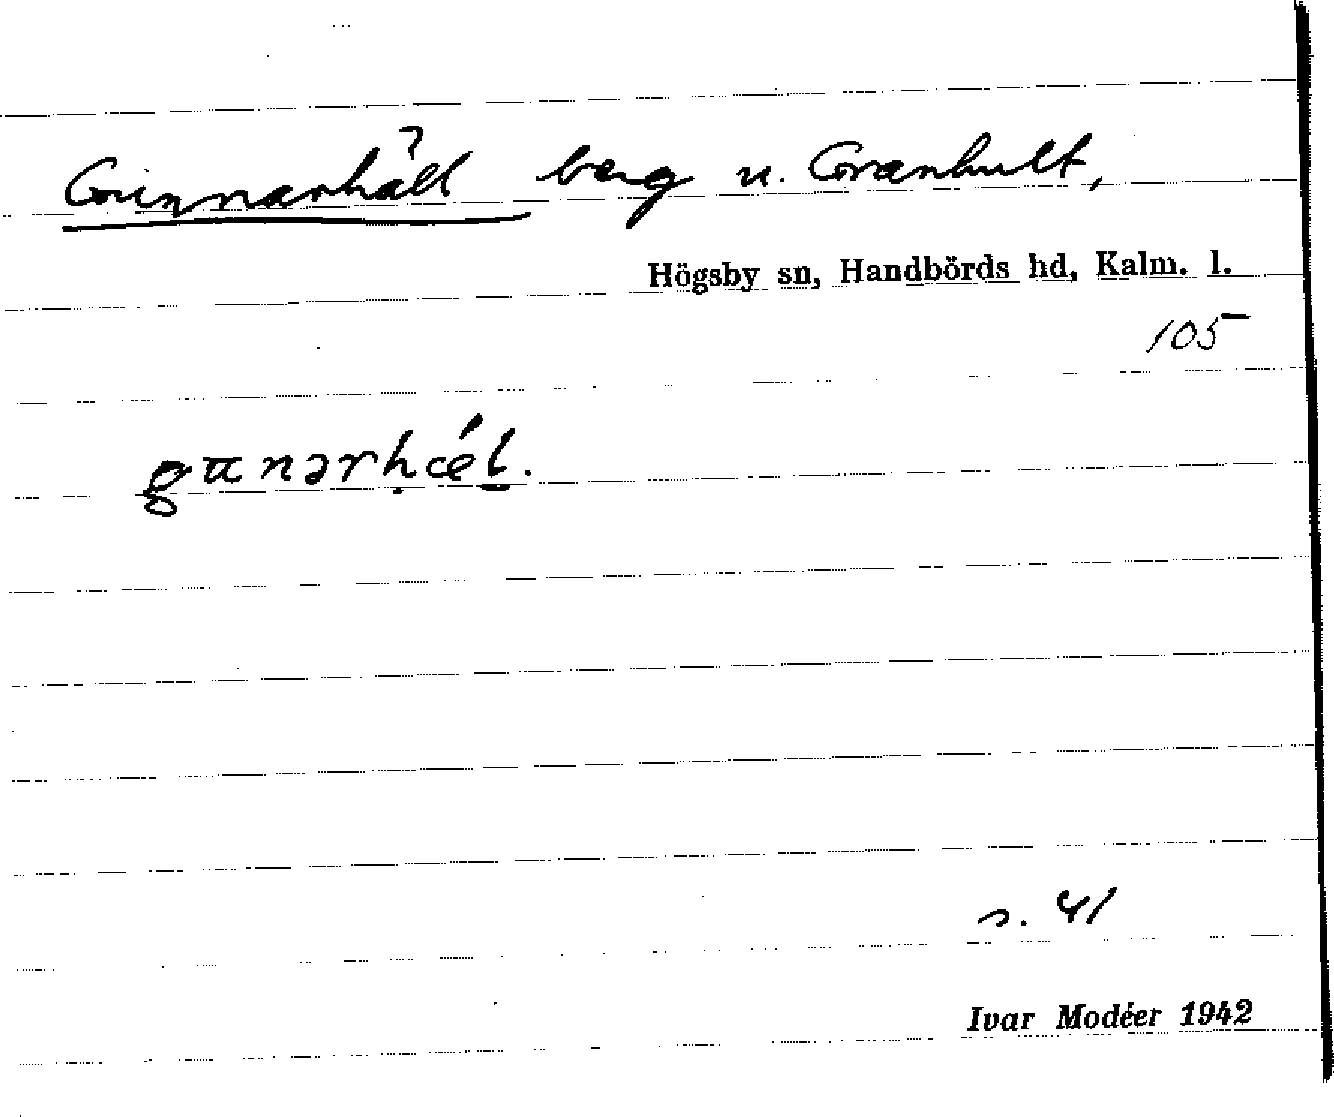 Gunnarhäll berg u. Granhult,
Högsby sn, Handbörds hd, Kalm. l.
105
gunərhǽl.
s. 41
Ivar Modéer 1942